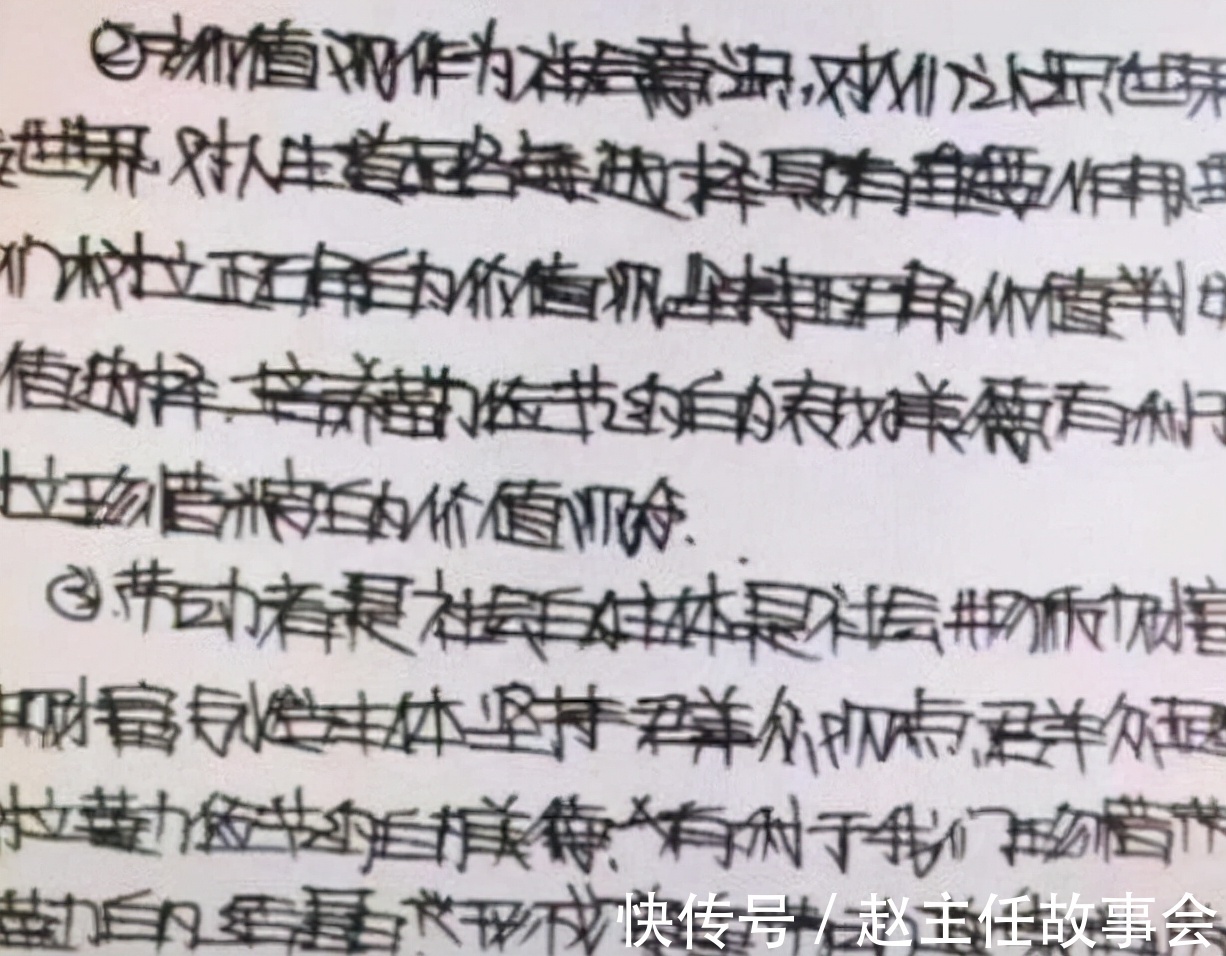 ②价值观作为社会意识,对人们认识世界
世界,对人生道路的选择具有重要作用
们树立正确的价值观,坚持正确价值判
值选择.培养勤俭节约的美德有利于
立珍惜粮食的价值观念.
③.劳动者是社会的主体是社会物质财富
财富创造主体.坚持群众观点,群众
立勤俭节约的美德,有利于我们珍惜
勤的 形成
快传号 / 赵主任故事会